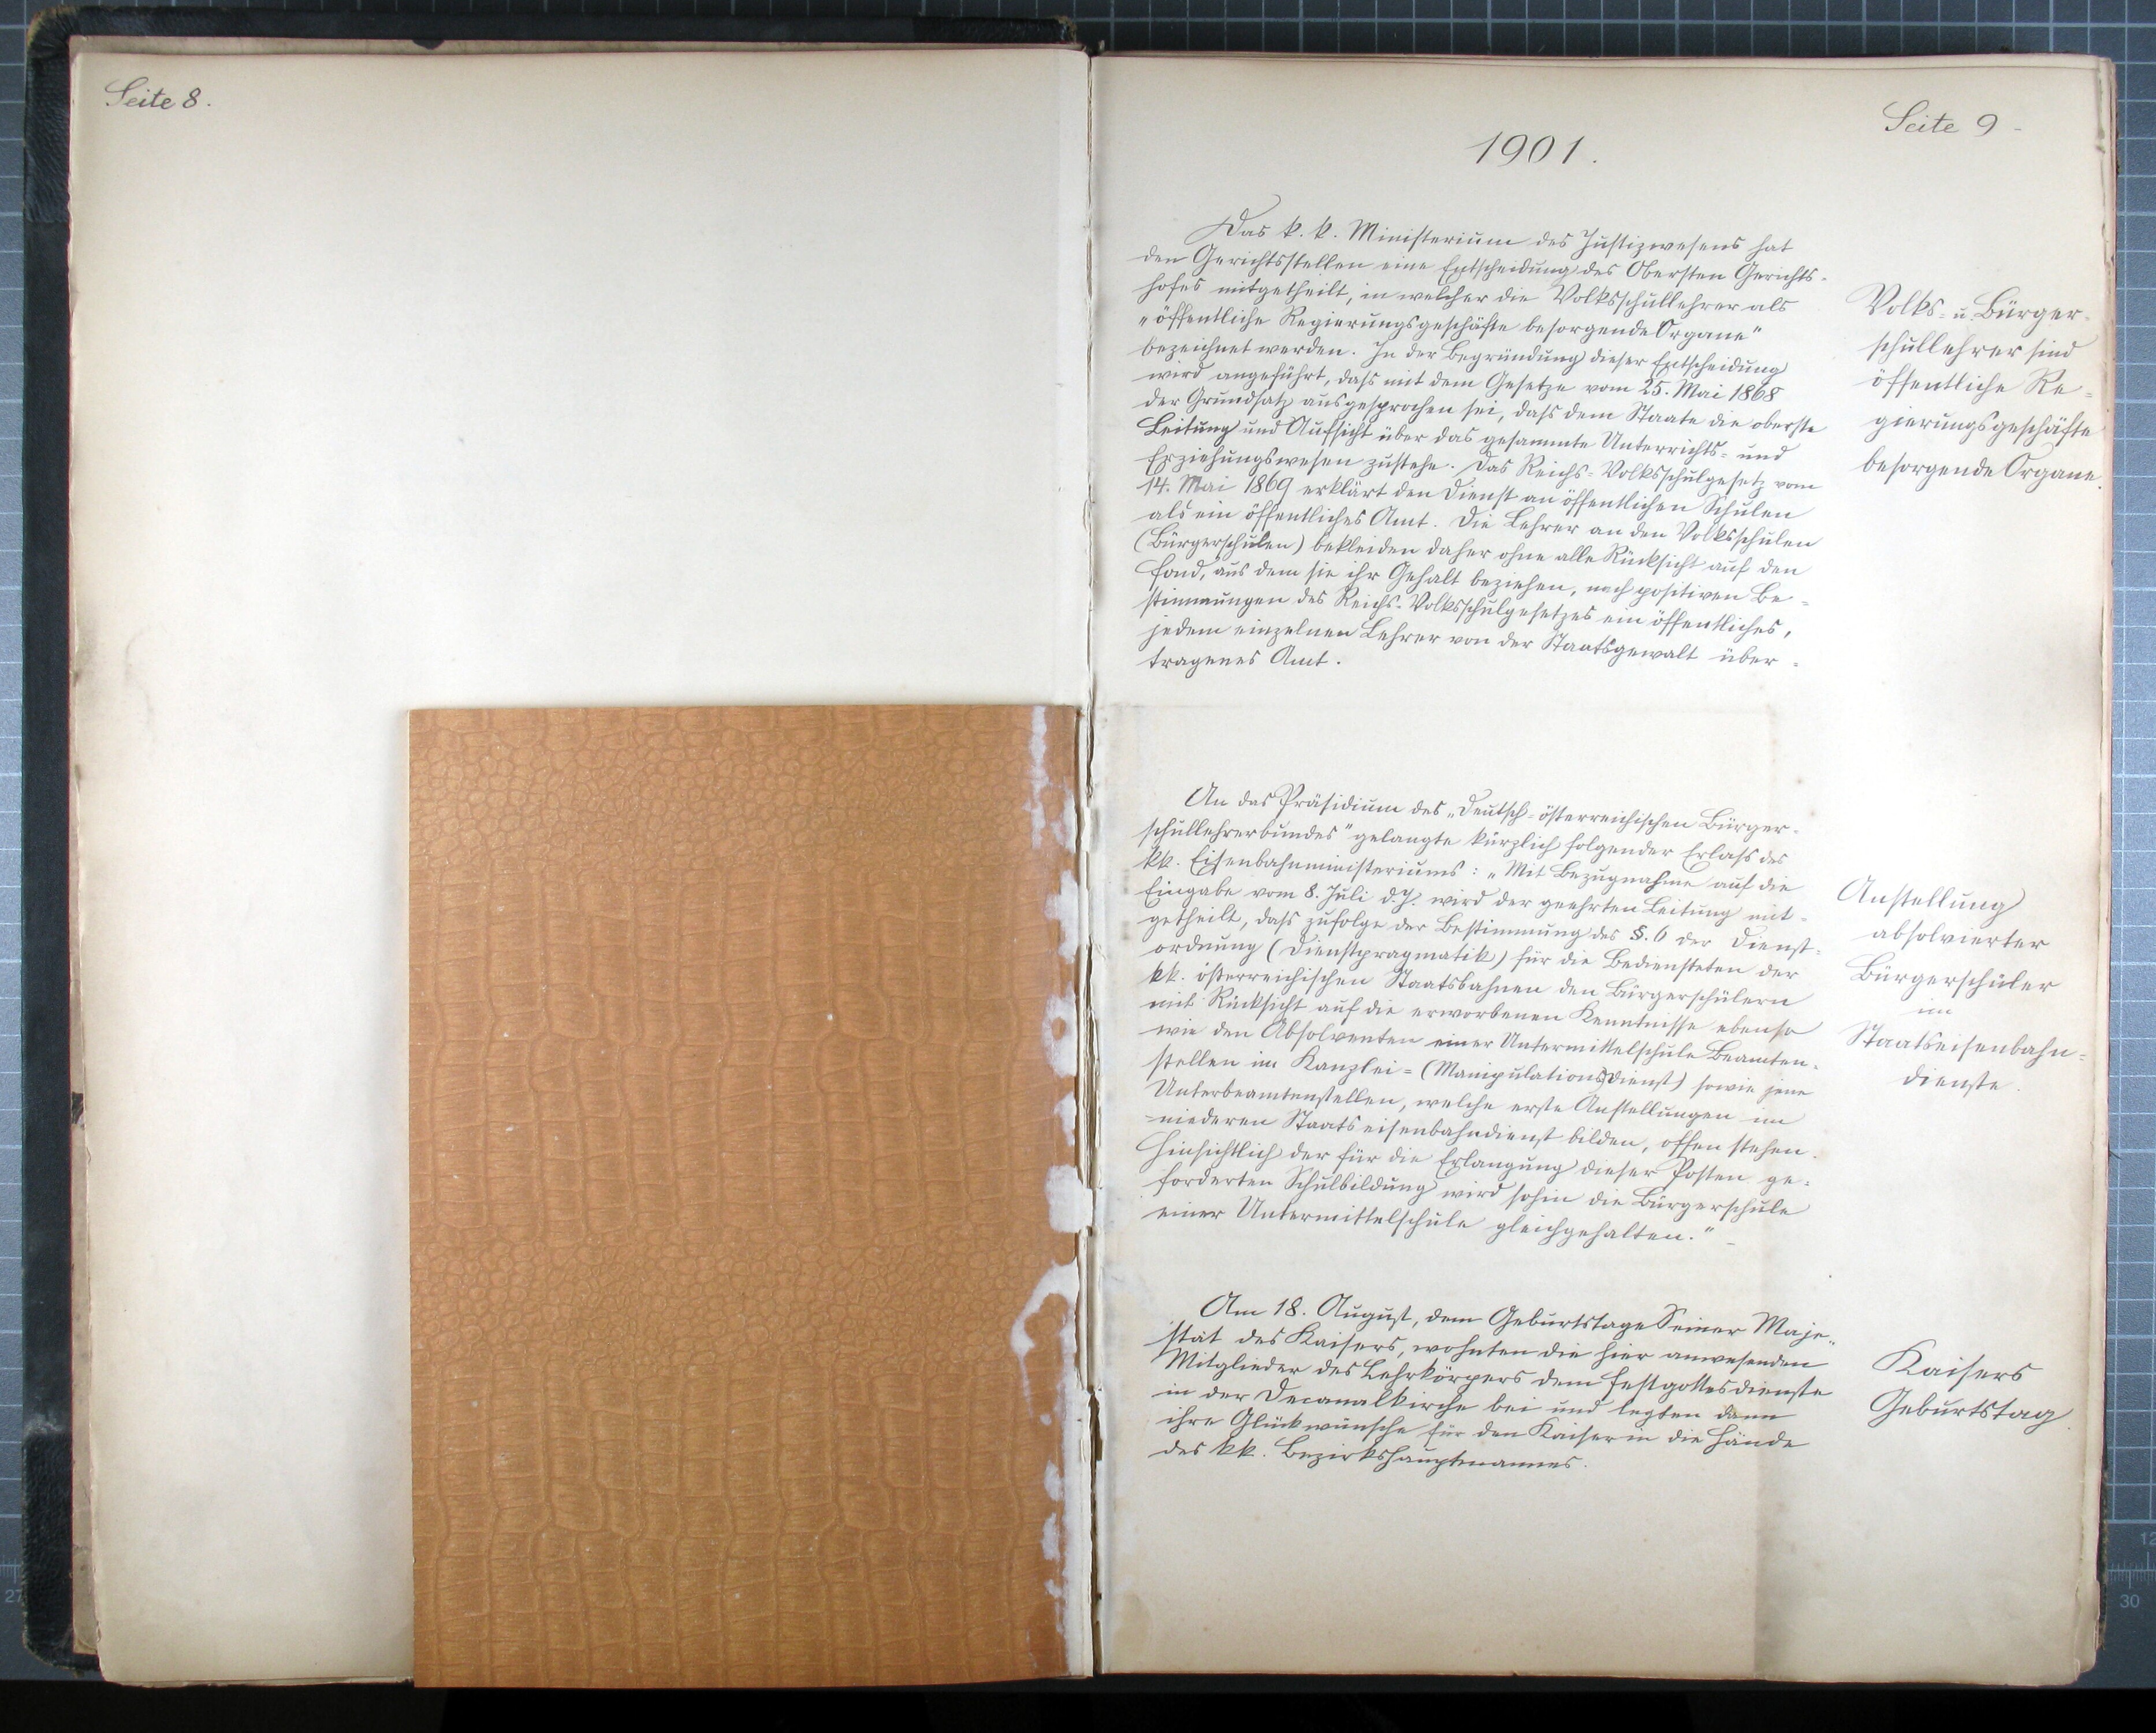 Seite 8.
Seite 9
1901.
Das k. k. Ministerium des Justizwesens hat
den Gerichtsstellen eine Entscheidung des Obersten Gerichts-
hofes mitgetheilt, in welcher die Volksschullehrer als
„öffentliche Regierungsgeschäfte besorgende Organe"
bezeichnet werden. In der Begründung dieser Entscheidung
wird angeführt, dass mit dem Gesetze vom 25. Mai 1868
der Grundsatz ausgesprochen sei, dass dem Staate die oberste
Leitung und Aufsicht über das gesammte Unterrichts- und
Erziehungswesen zustehe. Das Reichs-Volksschulgesetz vom
14. Mai 1869 erklärt den Dienst an öffentlichen Schulen
als ein öffentliches Amt. Die Lehrer an den Volksschulen
(Bürgerschulen) bekleiden daher ohne alle Rücksicht auf den
Fond, aus dem sie ihr Gehalt beziehen, nach positiven Be-
stimmungen des Reichs-Volksschulgesetzes ein öffentliches,
jedem einzelnen Lehrer von der Staatsgewalt über-
tragenes Amt.
Volks- u. Bürger-
schullehrer sind
öffentliche Re-
gierungsgeschäfte
besorgende Organe.
An das Präsidium des „Deutsch-österreichischen Bürger-
schullehrerbundes" gelangte kürzlich folgender Erlass des
kk. Eisenbahnministeriums: „Mit Bezugnahme auf die
Eingabe vom 8. Juli d. J. wird der geehrten Leitung mit-
getheilt, dass zufolge der Bestimmung des §. 6 der Dienst-
ordnung (Dienstpragmatik) für die Bediensteten der
kk. österreichischen Staatsbahnen den Bürgerschülern
mit Rücksicht auf die erworbenen Kenntnisse ebenso
wie den Absolventen einer Untermittelschule Beamten-
stellen im Kanzlei- (Manipulationsdienst) sowie jene
Unterbeamtenstellen, welche erste Anstellungen im
niederen Staatseisenbahndienst bilden, offen stehen.
Hinsichtlich der für die Erlangung dieser Posten ge-
forderten Schulbildung wird sohin die Bürgerschule
einer Untermittelschule gleichgehalten."
Anstellung
absolvierter
Bürgerschüler
im
Staatseisenbahn-
dienste.
Am 18. August, dem Geburtstage Seiner Maje-
stät des Kaisers, wohnten die hier anwesenden
Mitglieder des Lehrkörpers dem Festgottesdienste
in der Decanalkirche bei und legten dann
ihre Glückwünsche für den Kaiser in die Hände
des kk. Bezirkshauptmannes.
Kaisers
Geburtstag